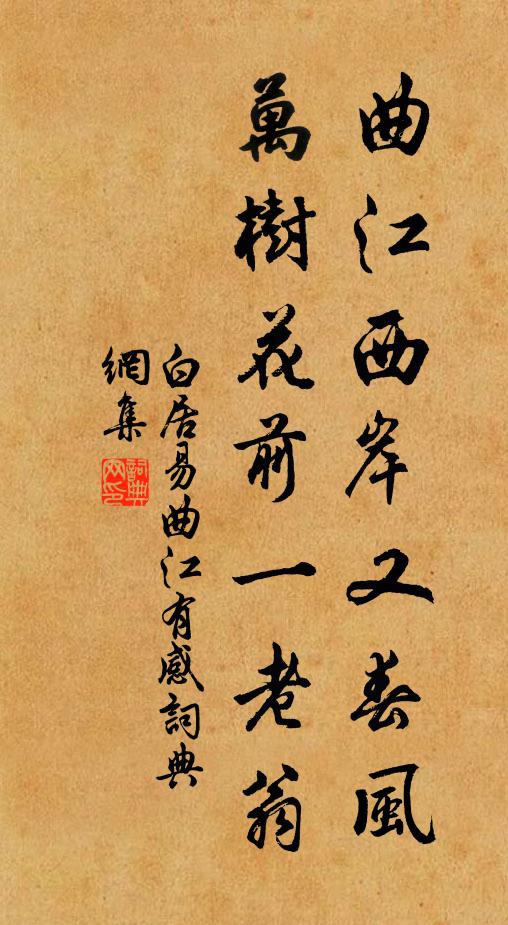 曲江西岸又春風
萬樹花前一老翁
白居易曲江有感詞典
網集
詞典
网印